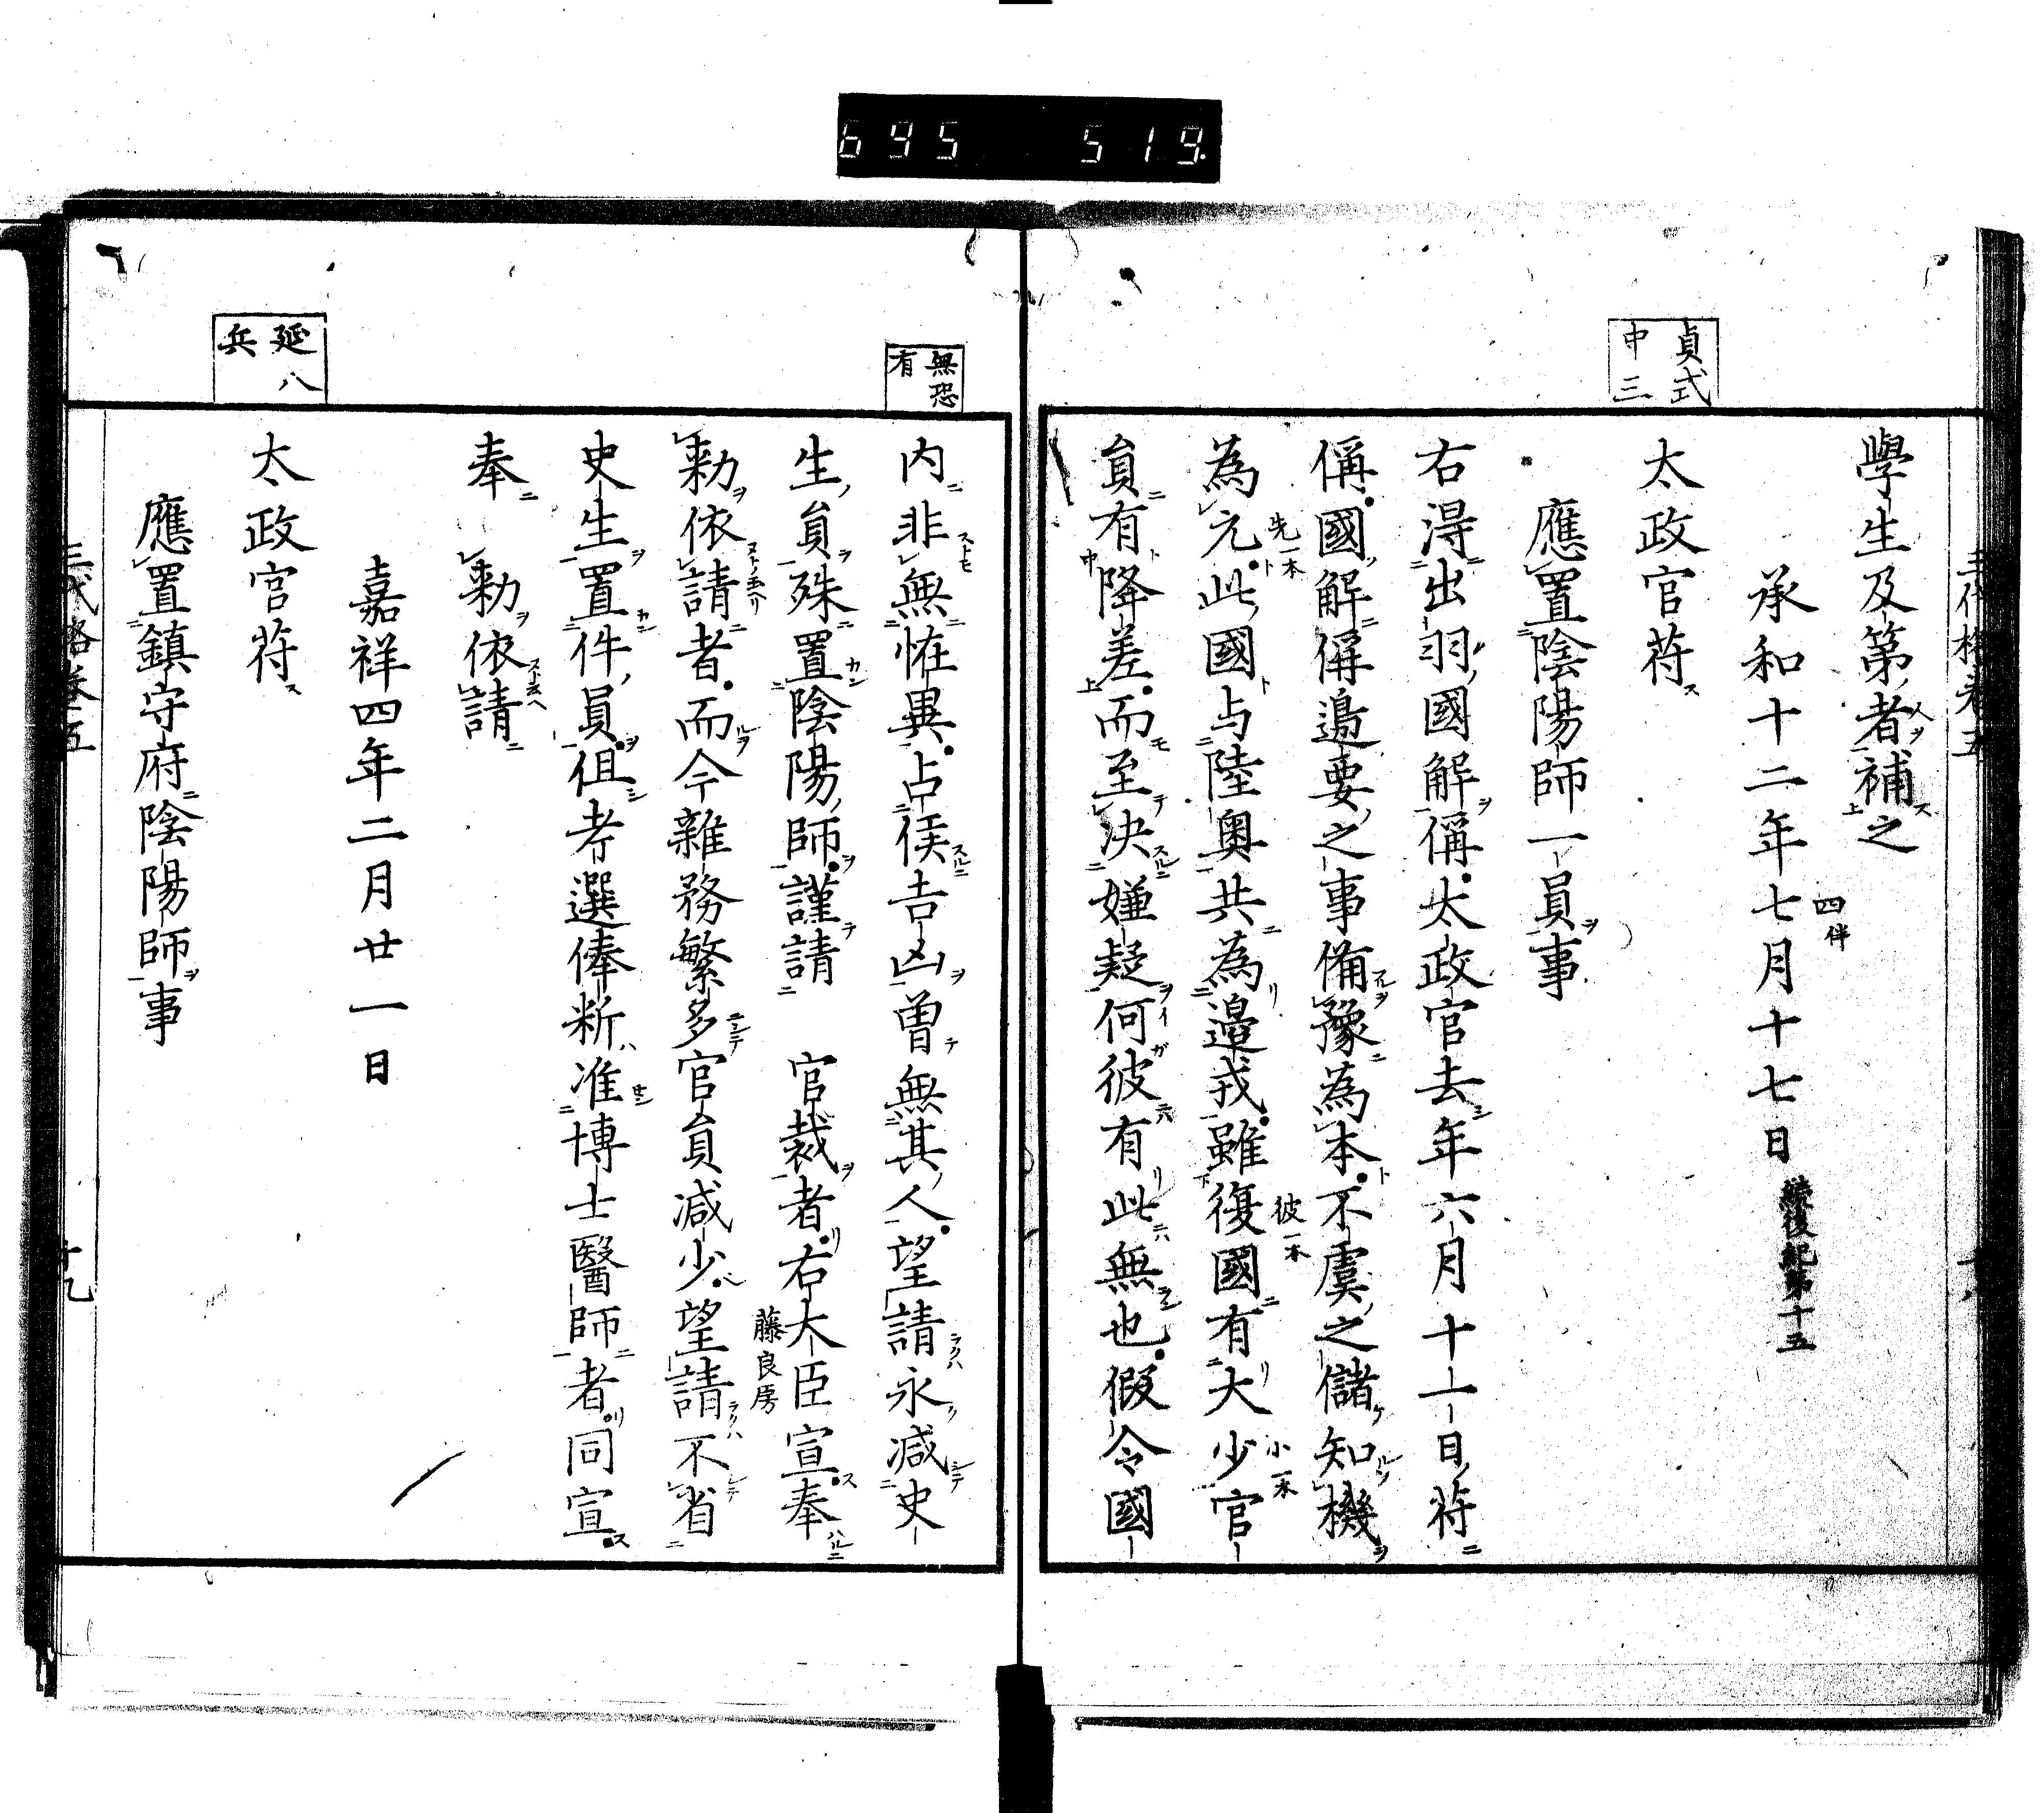 695 519
貞式
中三
學生及第者補之
四伴
承和十二年七月十七日 續後紀第十五
太政官苻
應置陰陽師一員事
右得出羽國解偁太政官去年六月十一日苻
偁國解偁邊要之事備豫為本不虞之儲知機
先一本
為元此國与陸奧共為邊戎雖復國有大少官
彼一本
小一本
員有降差而至决嫌疑何彼有此無也假令國
無恐有
内非無恠異占候吉凶曽無其人望請永減史
生員殊置陰陽師謹請 官裁者右大臣宣奉
藤良房
勅依請者而今雜務繁多官員減少望請不省
史生置件員但考選俸新准博士醫師者同宣
奉 勅依請
嘉祥四年二月廿一日
延八
兵
太政官苻
應置鎮守府陰陽師事